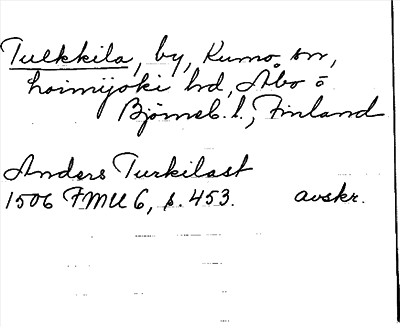 Tulkkila, by, Kumo sn,
Loimijoki hd, Åbo o
Björneb. l., Finland
Anders Turkilast
1506 FMU 6, p. 453. avskr.